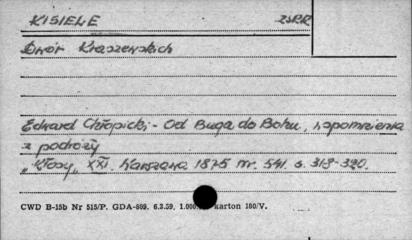 KISIELE ZSRR
Dwór Kraszewskich
Edward Chłopicki - Od Buga do Bohu, wspomnienia
z podróży
"Kłosy" XXI. Warszawa 1875 nr. 541. s. 319-320.
CWD B-15b Nr 515/P. GDA-809. 6.3.59. 1.000. karton 180/V.